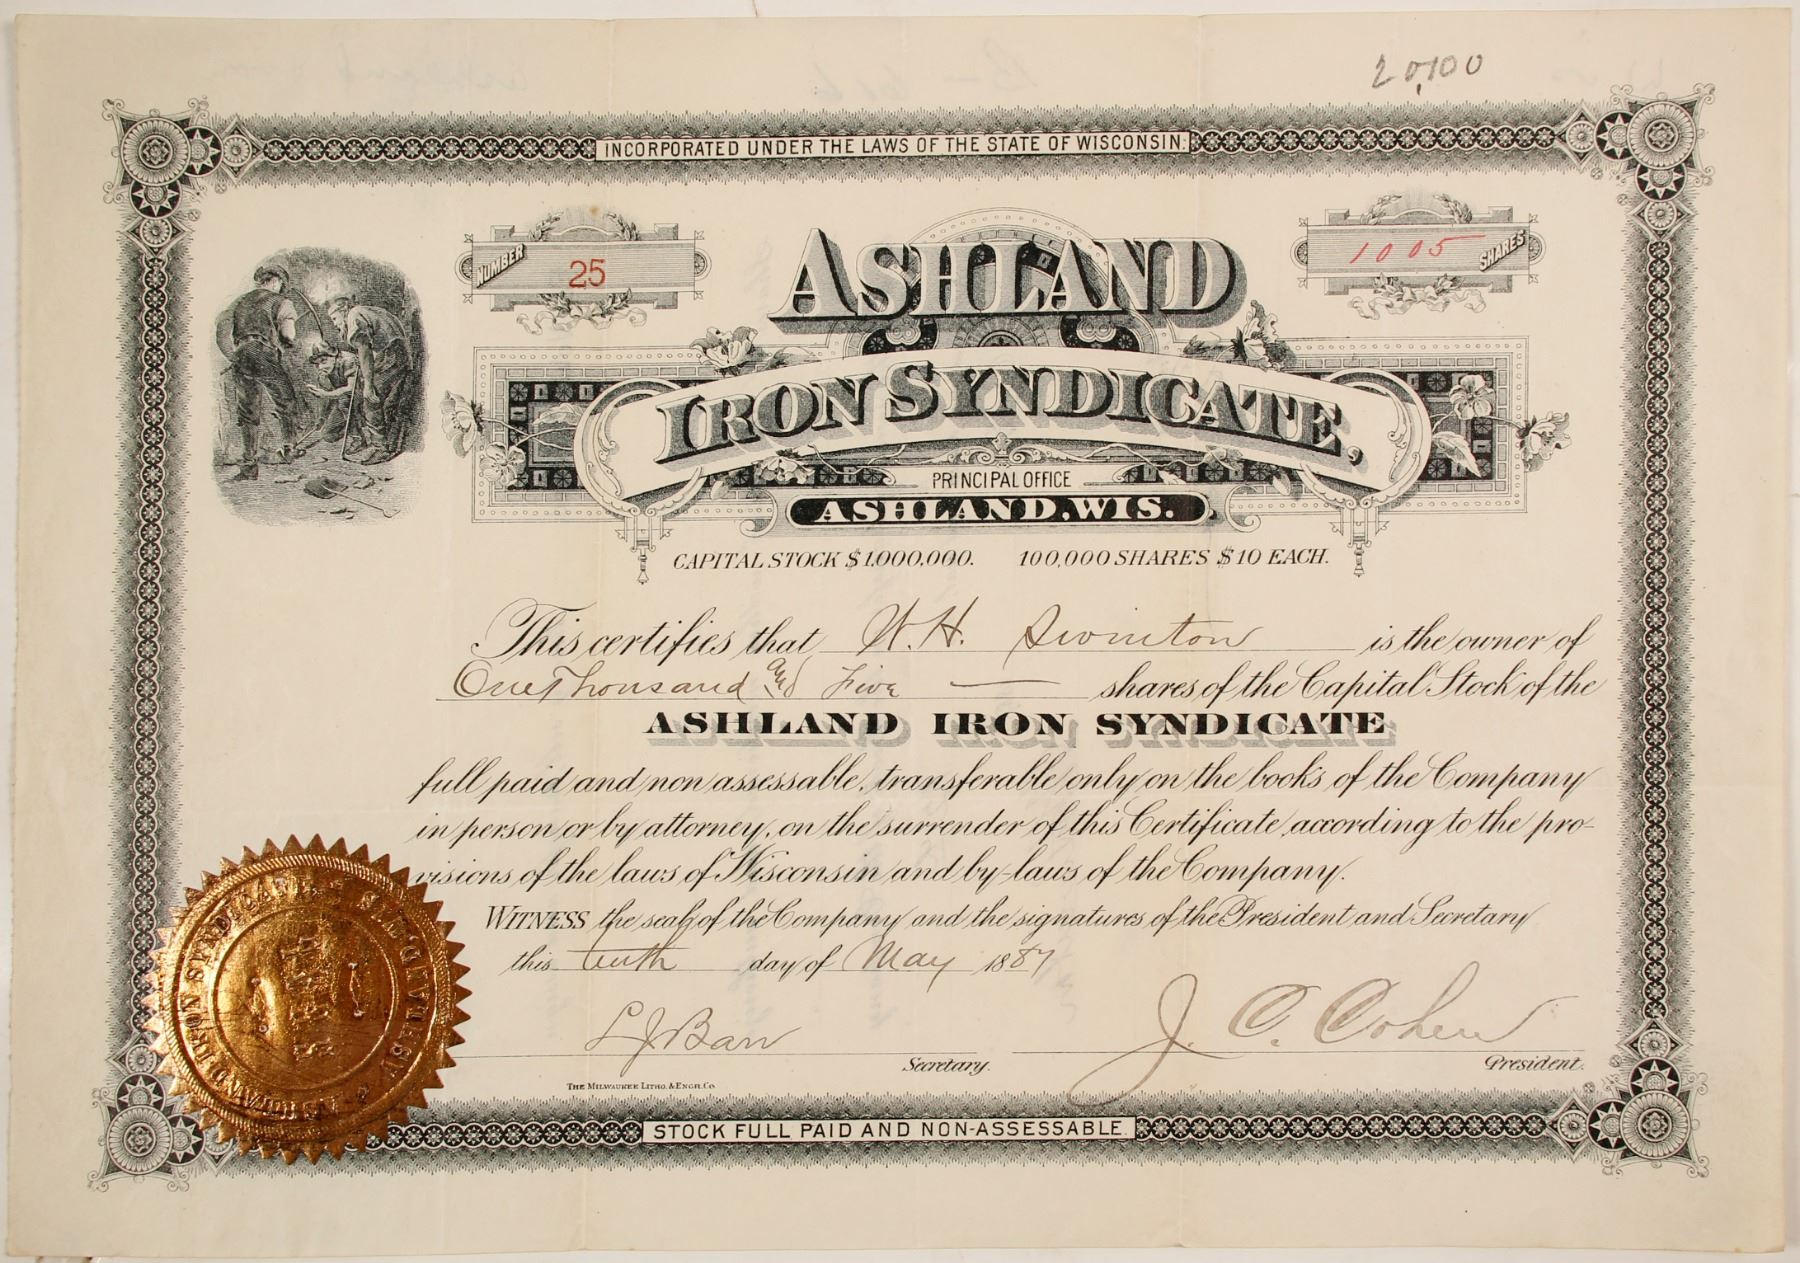 20,100
INCORPORATED UNDER THE LAWS OF THE STATE OF WISCONSIN.
NUMBER 25
1005 SHARES
ASHLAND
IRON SYNDICATE,
PRINCIPAL OFFICE
ASHLAND, WIS.
CAPITAL STOCK $1,000,000. 100,000 SHARES $10 EACH.
This certifies that W. H. Swinton is the owner of
One Thousand and Five — shares of the Capital Stock of the
ASHLAND IRON SYNDICATE
full paid and non assessable, transferable only on the books of the Company
in person or by attorney, on the surrender of this Certificate according to the pro-
visions of the laws of Wisconsin and by-laws of the Company.
WITNESS the seal of the Company and the signatures of the President and Secretary
this tenth day of May 1887
L J Barr Secretary.
J. C. Cohen President.
THE MILWAUKEE LITHO. & ENGR. CO.
STOCK FULL PAID AND NON-ASSESSABLE.
ASHLAND IRON SYNDICATE